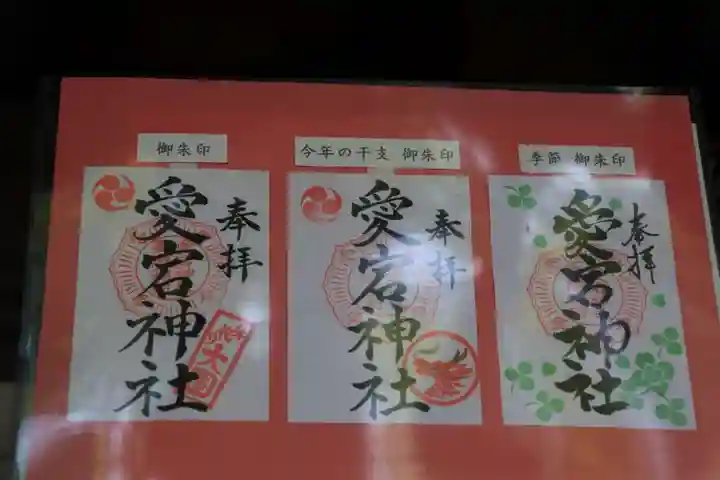 御朱印
奉拝
愛宕神社
今年の干支 御朱印
奉拝
愛宕神社
季節 御朱印
奉拝
愛宕神社